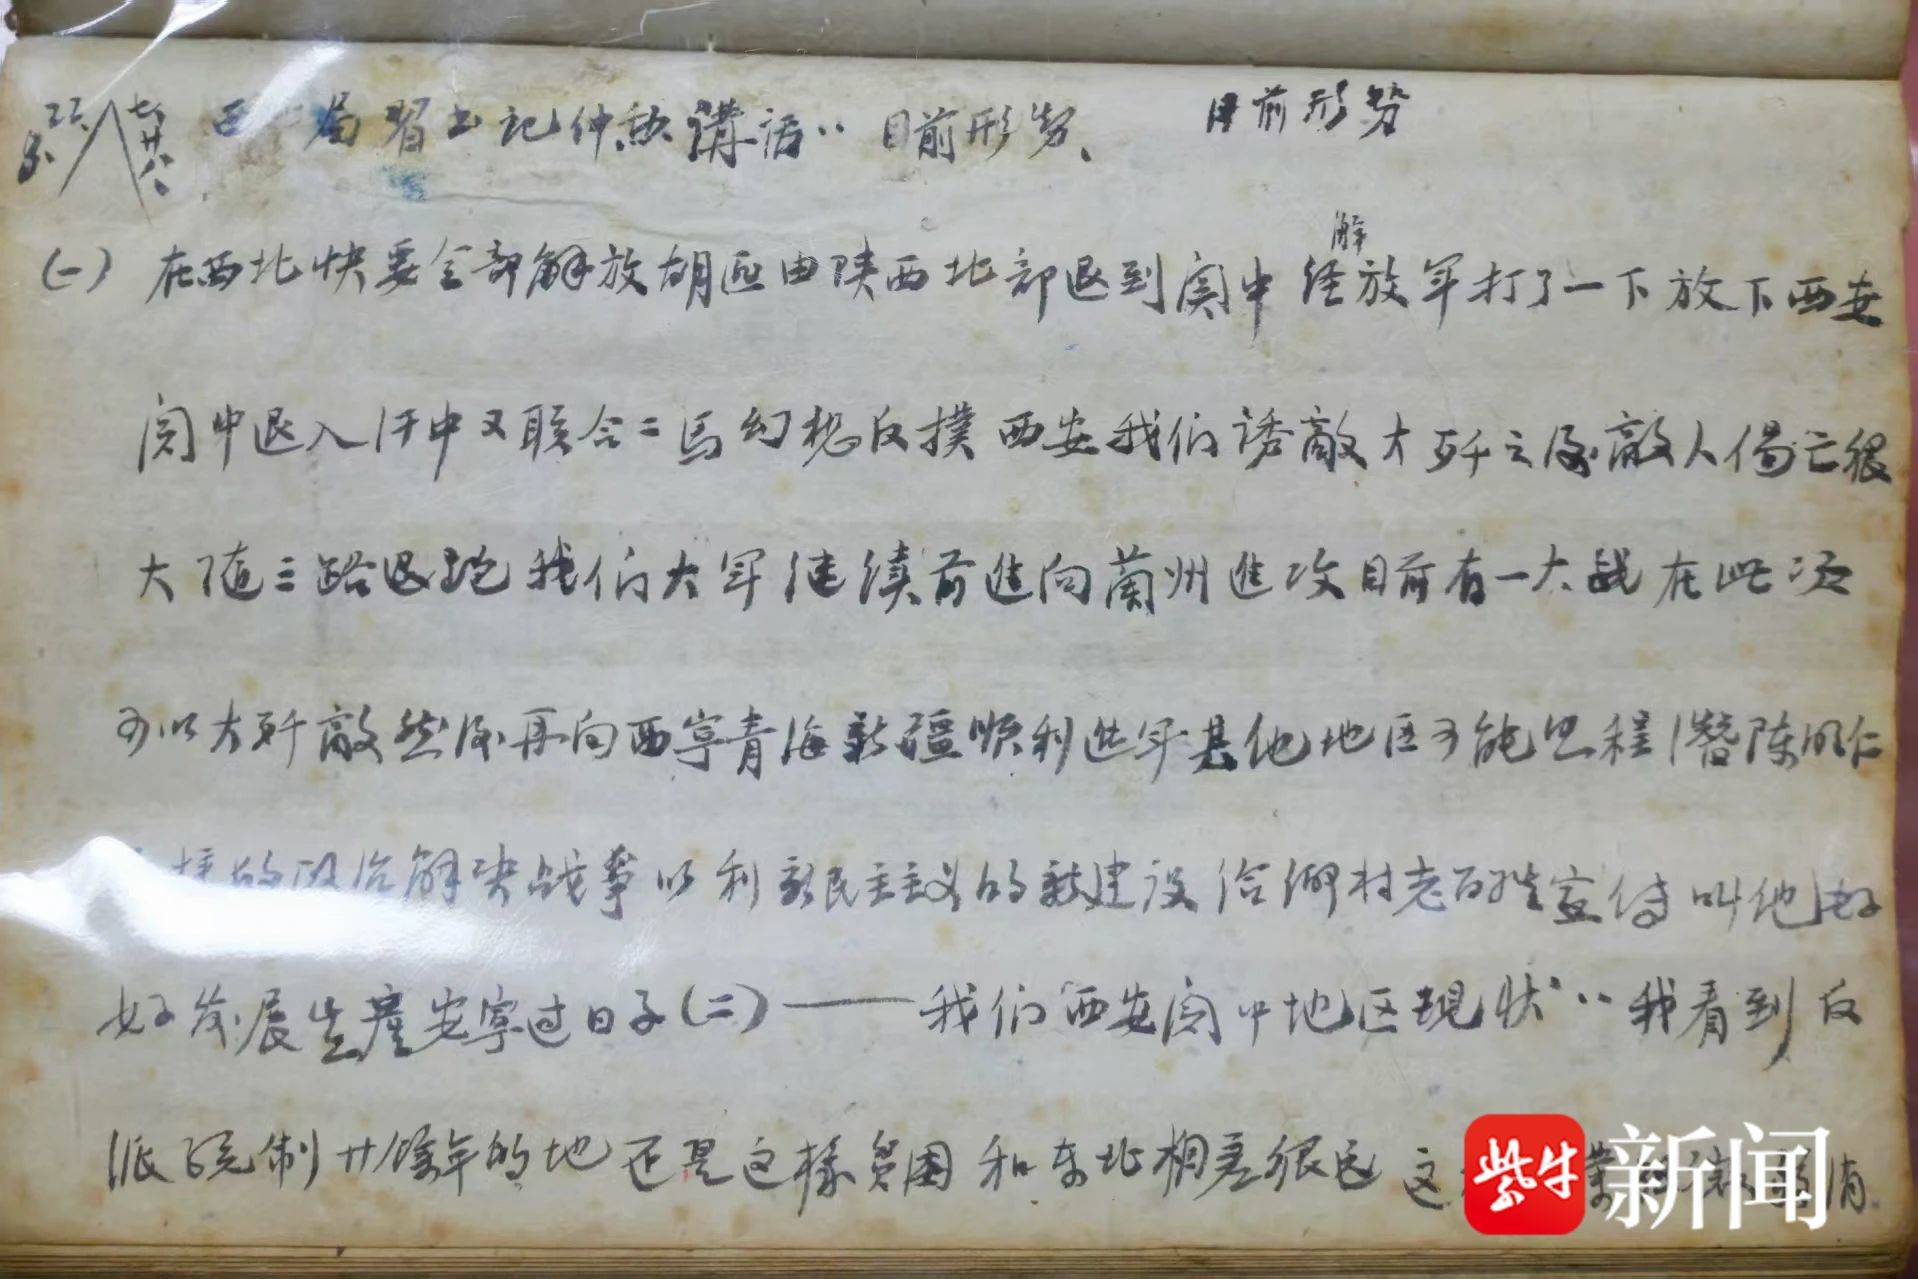 八廿八、西 局習书记仲勋講话：目前形势、 目前形势
(一) 在西北快要全部解放胡匪由陕西北部退到関中经解放军打了一下放下西安
関中退入汗中又联合二马幻想反撲西安我们诱敌大歼之后敌人傷亡很
大随三路退跑我们大军继续前進向蘭州進攻目前有一大战在此次
可以大歼敌然后再向西宁青海新疆順利进军其他地区可能 程潜陈明仁
的政治解决战争以利新民主主义的新建设给 村老百姓宣传叫他 好
好发展生產安寧过日子(二)——我们西安関中地区現状：我看到反
派统制廿馀年的地 还是这様貧困和东北相差很远 这
紫牛新闻